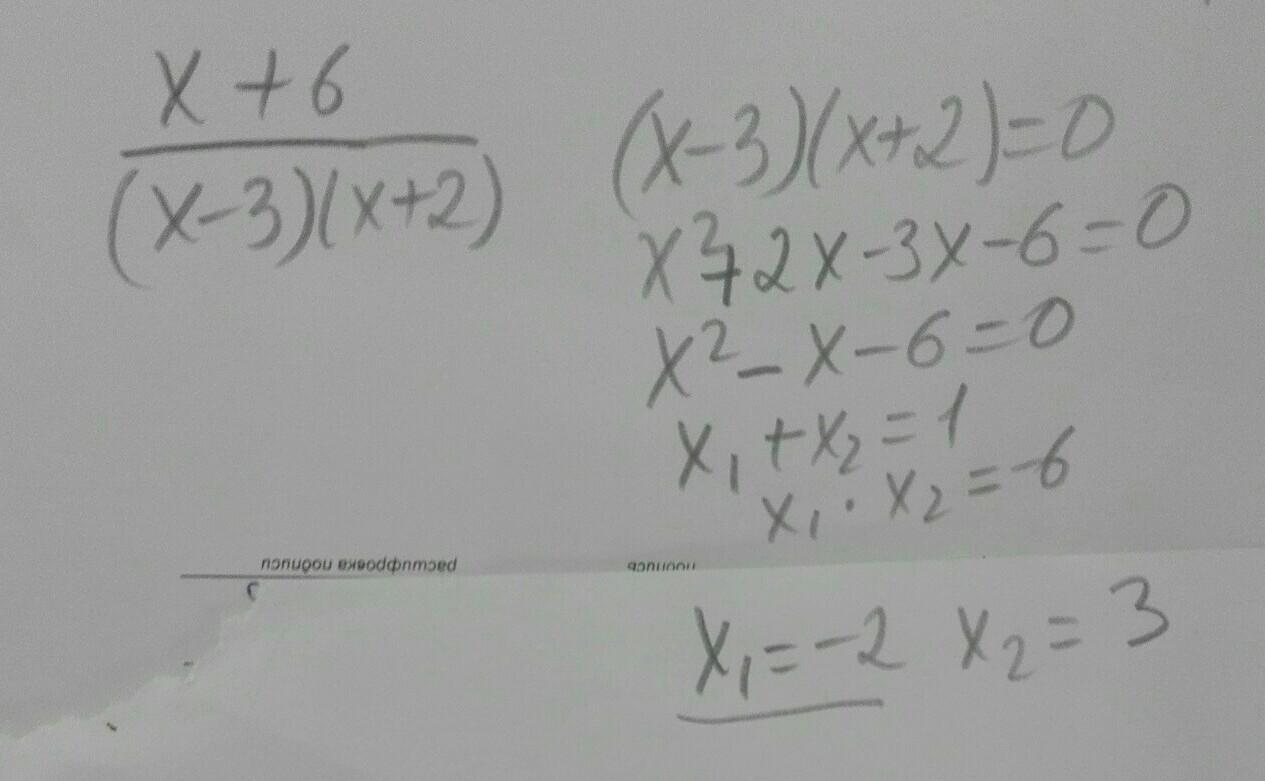 x + 6
(x-3)(x+2)
(x-3)(x+2)=0
x²+2x-3x-6=0
x²-x-6=0
x₁+x₂=1
x₁·x₂=-6
расшифровка подписи
подпись
x₁=-2 x₂=3